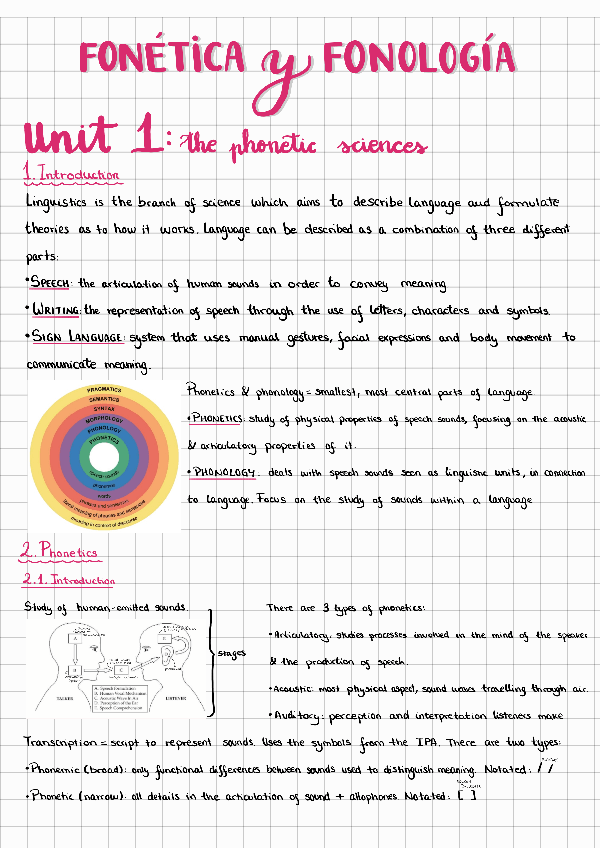 FONÉTICA y FONOLOGÍA
Unit 1: the phonetic sciences
1. Introduction
Linguistics is the branch of science which aims to describe language and formulate
theories as to how it works. Language can be described as a combination of three different
parts:
•SPEECH: the articulation of human sounds in order to convey meaning
•WRITING: the representation of speech through the use of letters, characters and symbols.
•SIGN LANGUAGE: system that uses manual gestures, facial expressions and body movement to
communicate meaning.
PRAGMATICS
SEMANTICS
SYNTAX
MORPHOLOGY
PHONOLOGY
PHONETICS
speech sounds
phonemes
words
phrases and sentences
literal meaning of phrases and sentences
meaning in context of discourse
Phonetics & phonology = smallest, most central parts of language
•PHONETICS: study of physical properties of speech sounds, focusing on the acoustic
& articulatory properties of it.
•PHONOLOGY: deals with speech sounds seen as linguistic units, in connection
to language. Focus on the study of sounds within a language
2. Phonetics
2.1. Introduction
Study of human-emitted sounds.
A
B
C
D
E
TALKER
LISTENER
A. Speech Formulation
B. Human Vocal Mechanism
C. Acoustic Wave in Air
D. Perception of the Ear
E. Speech Comprehension
stages
There are 3 types of phonetics:
•Articulatory: studies processes involved in the mind of the speaker
& the production of speech.
•Acoustic: most physical aspect, sound waves travelling through air.
•Auditory: perception and interpretation listeners make
Transcription = script to represent sounds. Uses the symbols from the IPA. There are two types:
•Phonemic (broad): only functional differences between sounds used to distinguish meaning. Notated: / /
•Phonetic (narrow): all details in the articulation of sound + allophones. Notated: [ ]